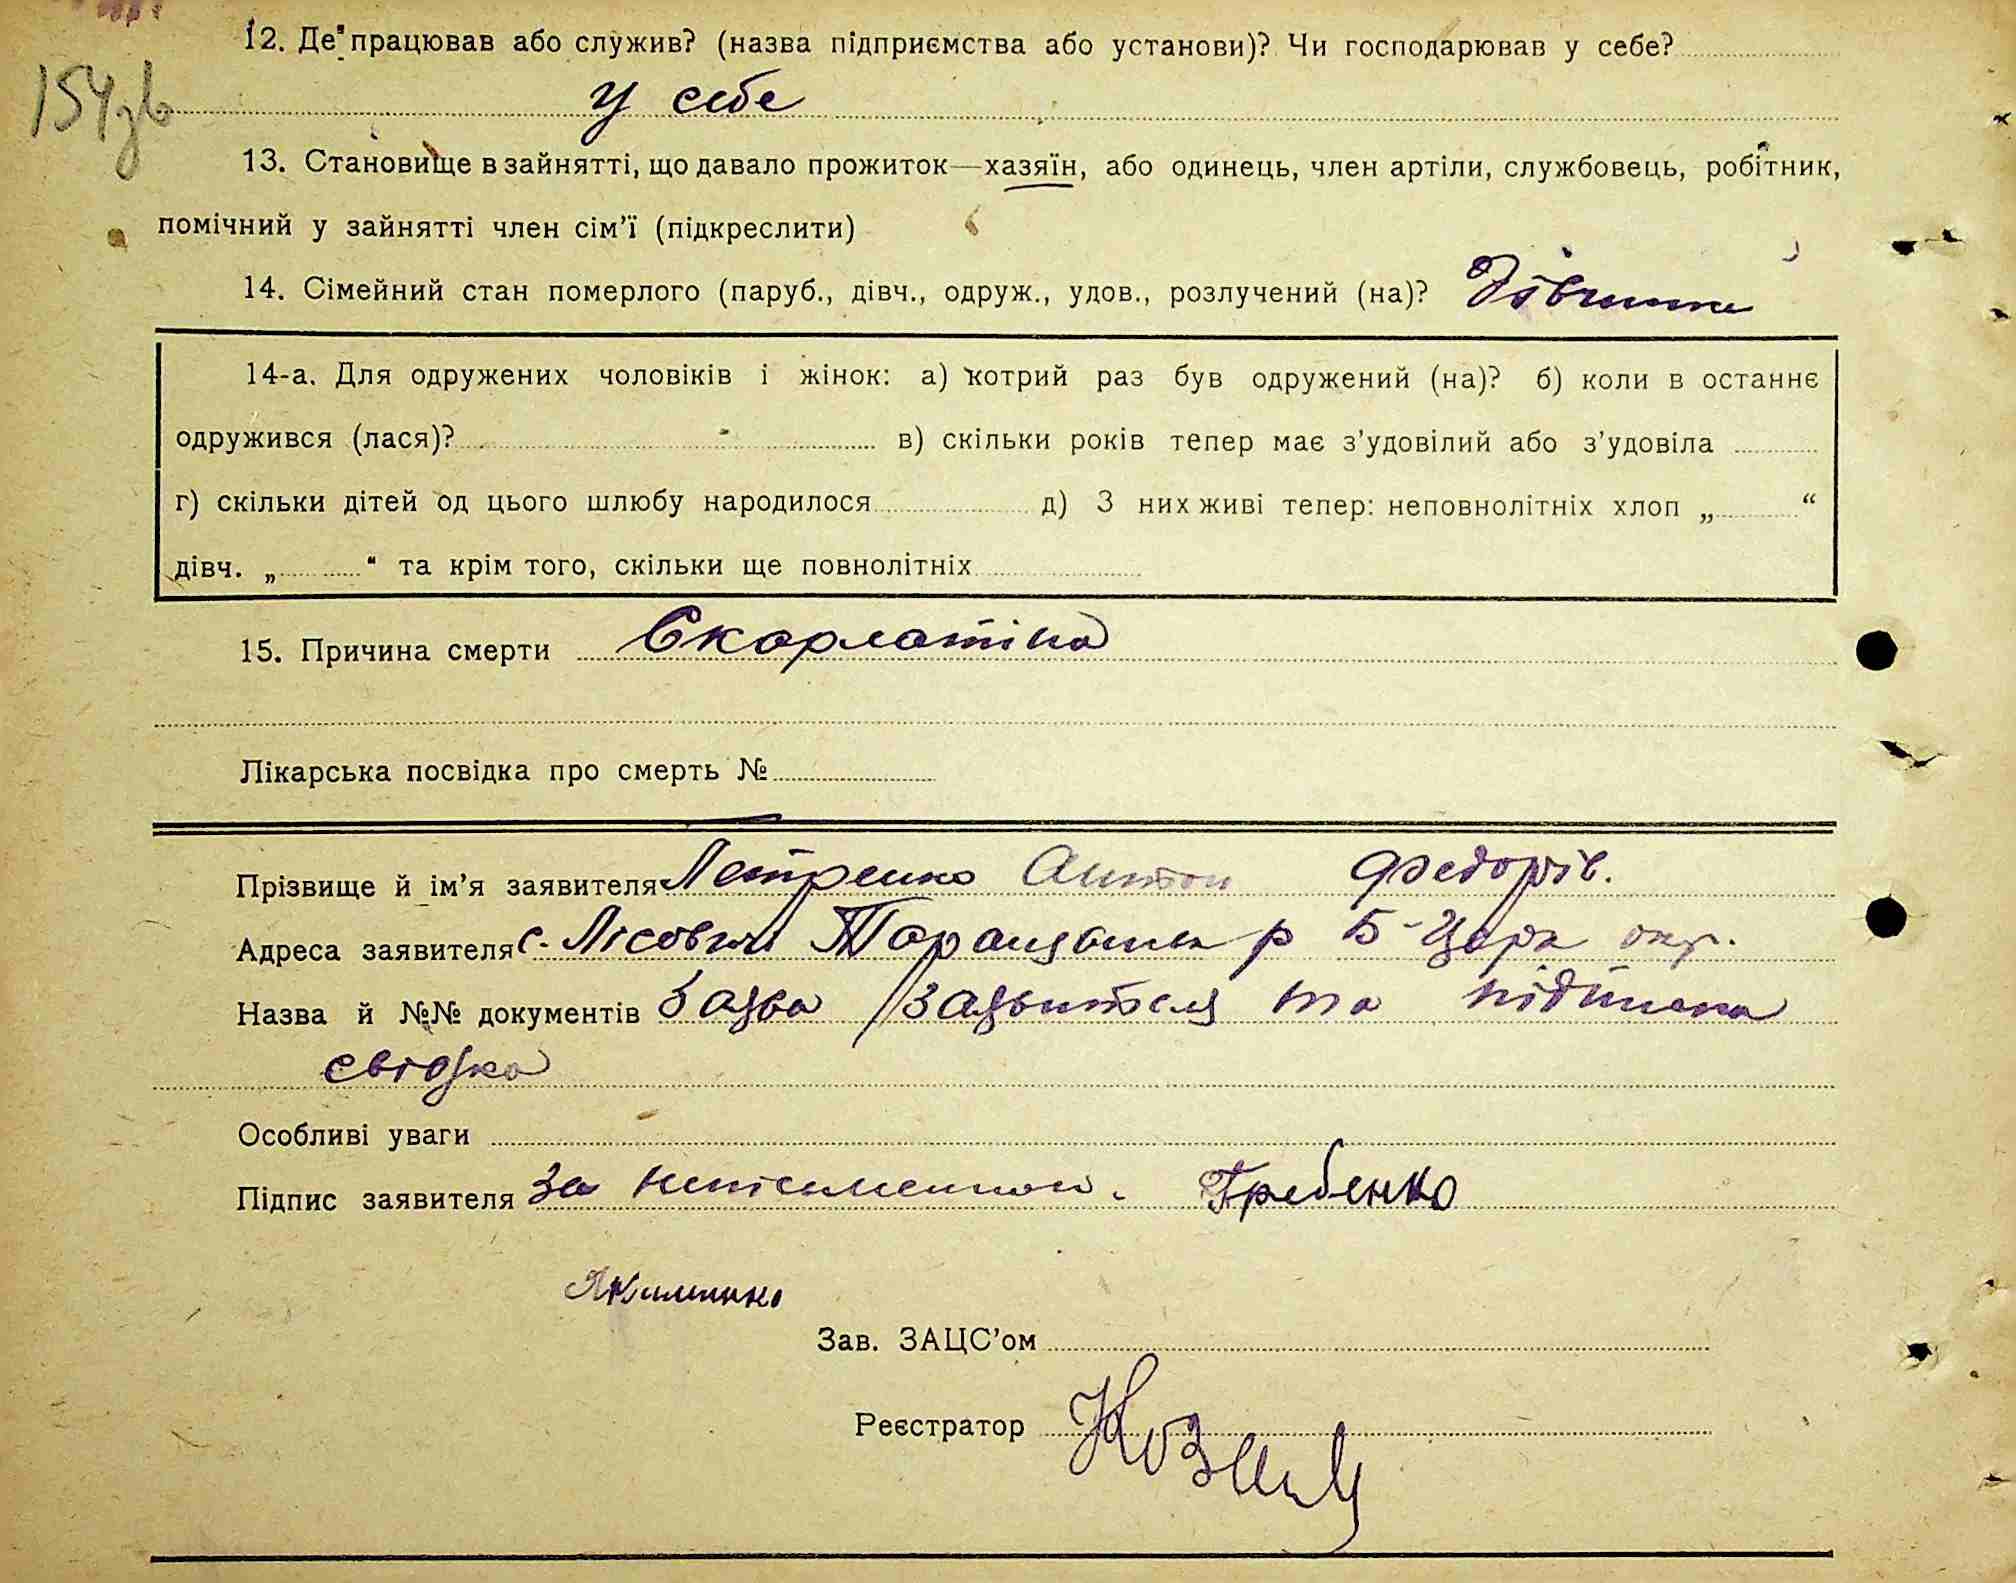 12. Де працював або служив? (назва підприємства або установи)? Чи господарював у себе?
154зв
у себе
13. Становище в зайнятті, що давало прожиток—хазяїн, або одинець, член артіли, службовець, робітник,
помічний у зайнятті член сім'ї (підкреслити)
14. Сімейний стан померлого (паруб., дівч., одруж., удов., розлучений (на)? Дівчина
14-а. Для одружених чоловіків і жінок: а) котрий раз був одружений (на)? б) коли в останнє
одружився (лася)? в) скільки років тепер має з'удовілий або з'удовіла
г) скільки дітей од цього шлюбу народилося д) З них живі тепер: неповнолітніх хлоп „ “
дівч. „ “ та крім того, скільки ще повнолітніх
15. Причина смерти Скарлатіна
Лікарська посвідка про смерть №
Прізвище й ім'я заявителя Петренко Антон Федорів.
Адреса заявителя с. Лісовичі Таращанськ р Б-Церк окр.
Назва й №№ документів Заява заявителя та підписка
свідка
Особливі уваги
Підпис заявителя за неписьменного Гребенко
Якименко
Зав. ЗАЦС'ом
Реєстратор